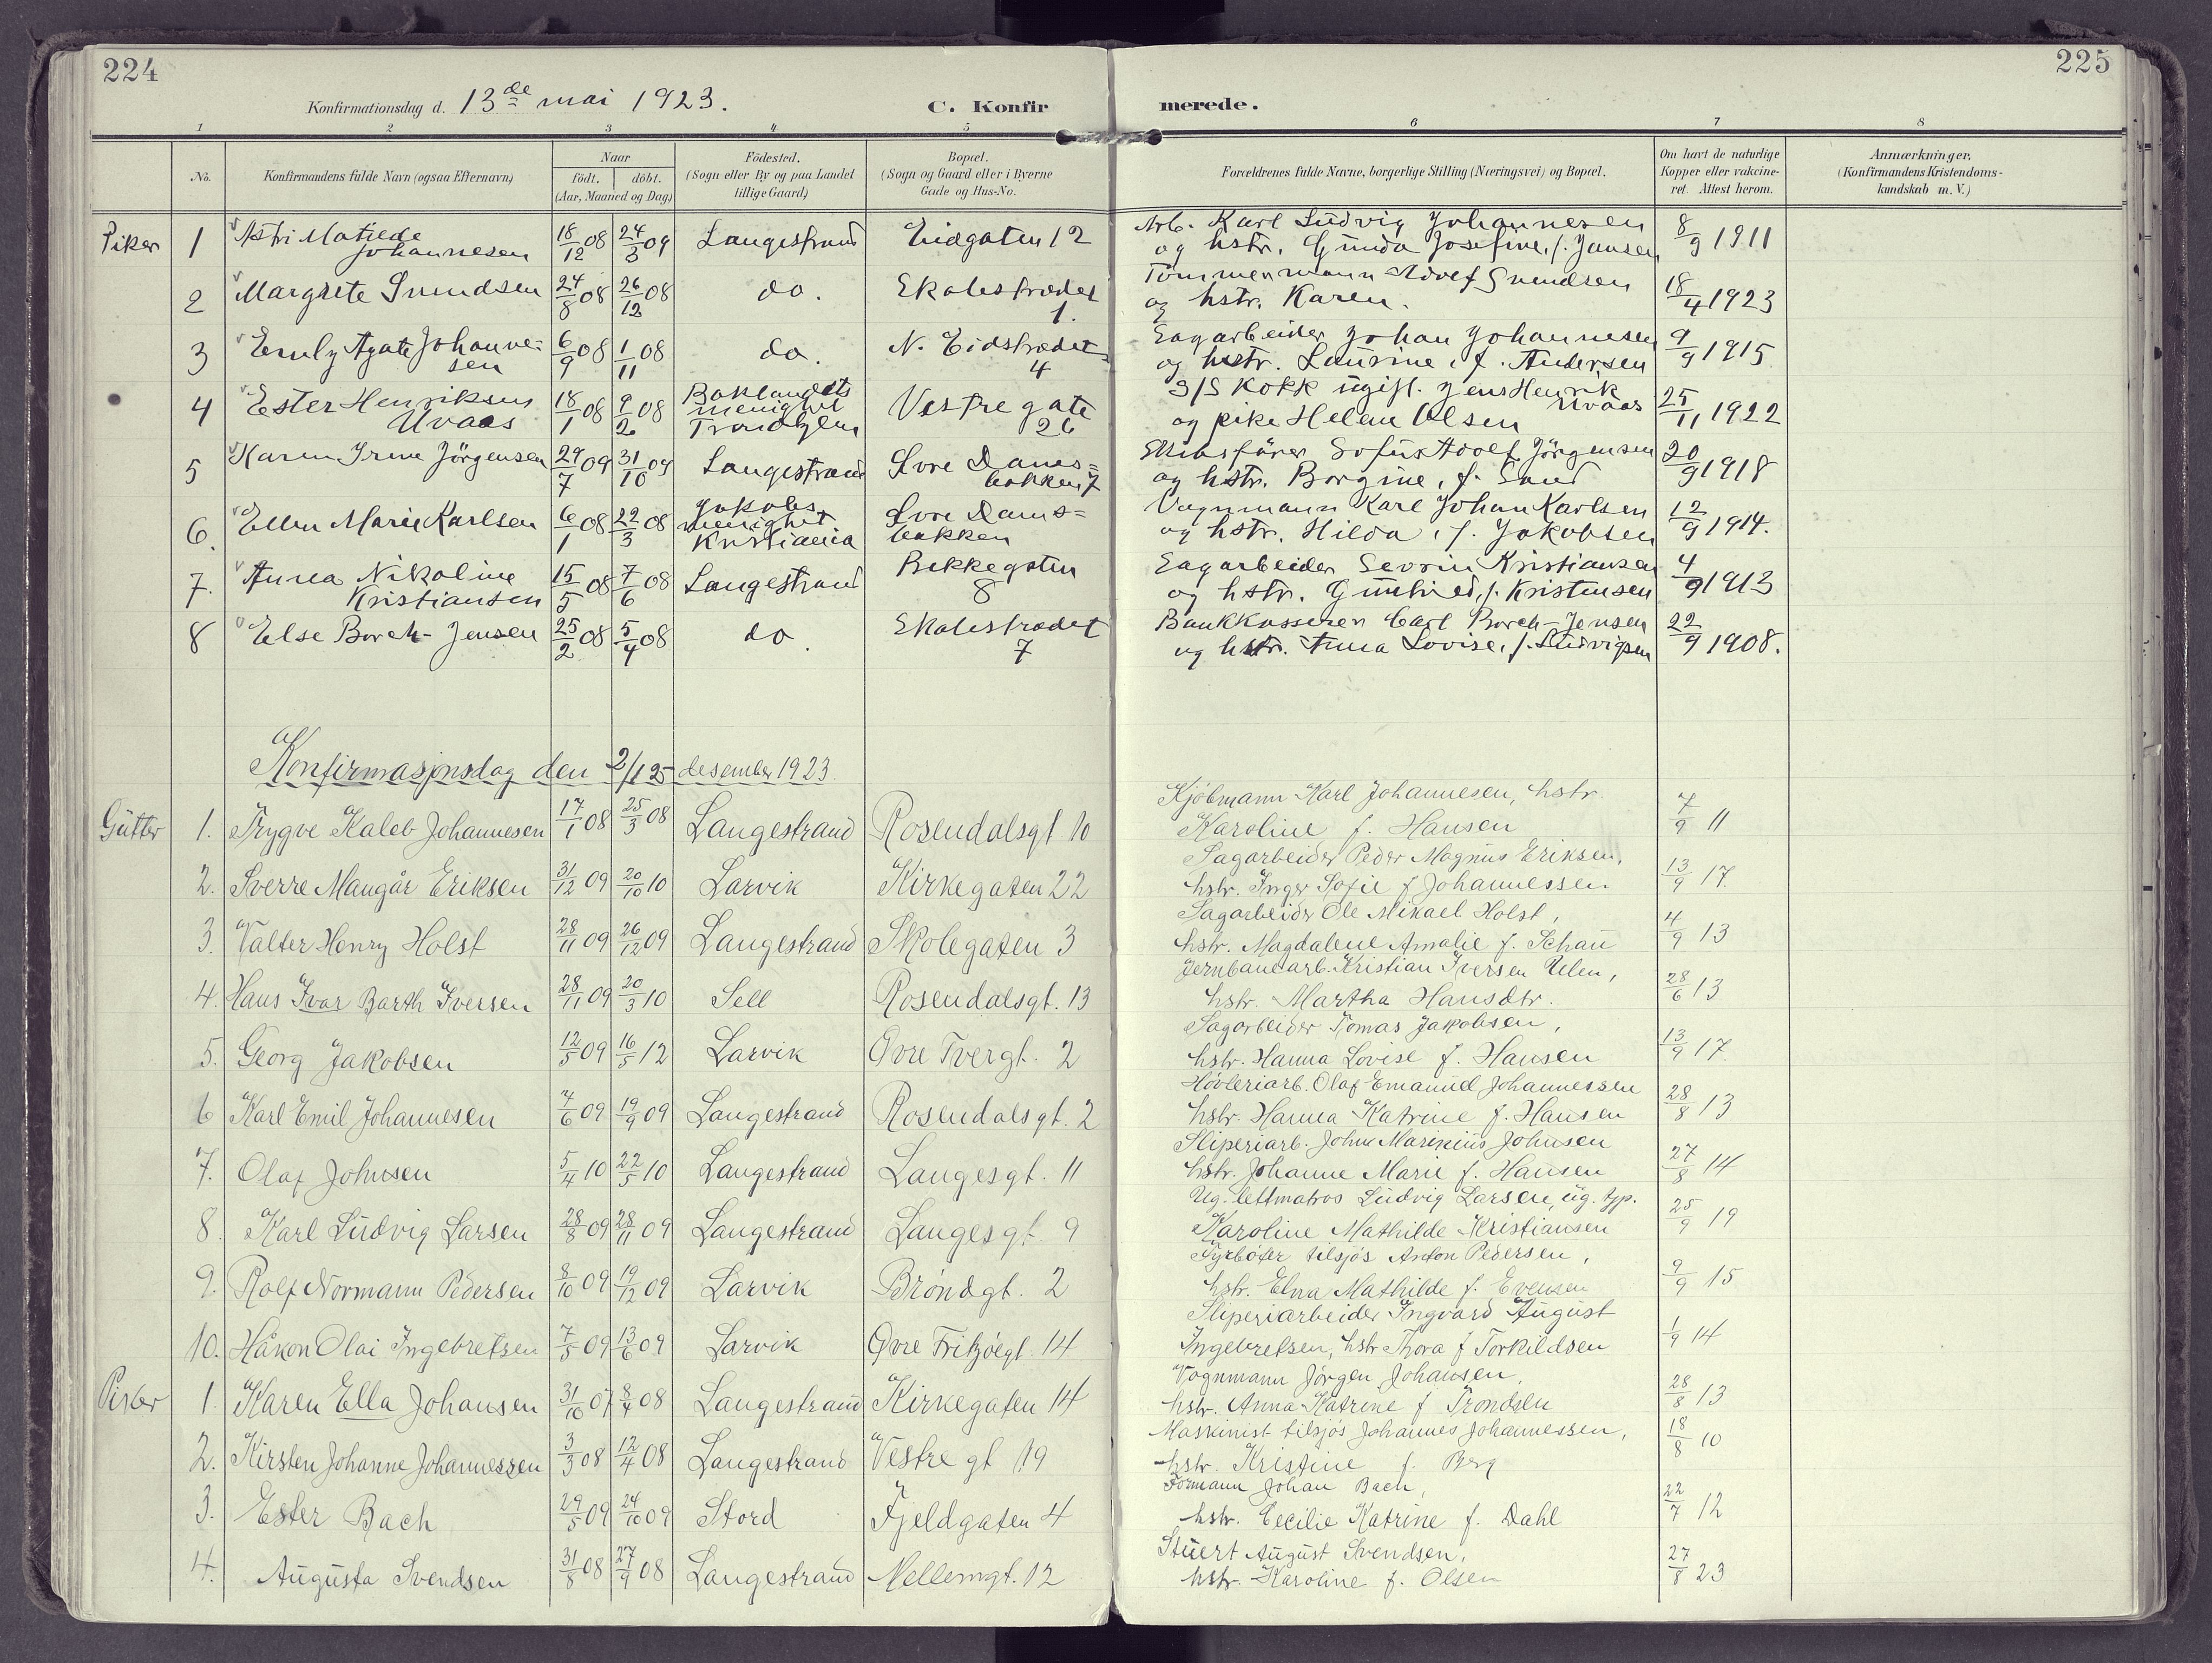 224
225
Konfirmationsdag d. 13de mai 1923.
C. Konfirmerede.
1 2 3 4 5 6 7 8
No.
Konfirmandens fulde Navn (ogsaa Efternavn)
Naar
födt. döbt.
(Aar, Maaned og Dag)
Födested.
(Sogn eller By og paa Landet
tillige Gaard)
Bopæl.
(Sogn og Gaard eller i Byerne
Gade og Hus-No.
Forældrenes fulde Navne, borgerlige Stilling (Næringsvei) og Bopæl.
Om havt de naturlige
Kopper eller vakcine-
ret. Attest herom.
Anmærkninger.
(Konfirmandens Kristendoms-
kundskab m. V.)
Piker 1 Astri Matilde Johannesen 18/12 08 24/3 09 Langestrand Eidgaten 12 Arb. Karl Ludvig Johannesen og hstr. Gunda Josefine, f. Jansen 8/9 1911
2 Margrete Svendsen 24/8 08 26/12 08 do. Skolestrædet 1. Tömmermann Adolf Svendsen og hstr. Karen. 18/4 1923
3 Emly Agate Johannesen 6/9 08 1/11 08 do. N. Eidstrædet 4 Sagarbeider Johan Johannesen og hstr. Laurine, f. Andersen 9/9 1915
4 Ester Henriksen Uvaas 18/1 08 9/2 08 Baklandets menighet Trondhjem Vestre gate 26 S/S Kokk ugift. Jens Henrik Uvaas og pike Helene Olsen 25/11 1922
5 Karen Irene Jörgensen 29/7 09 31/10 09 Langestrand Övre Damsbakken 7 Sofus Adolf Jörgensen og hstr. Borgine, f. Sand 20/9 1918
6. Ellen Marie Karlsen 6/1 08 22/3 08 Jakobs menighet Kristiania Övre Damsbakken Vognmann Karl Johan Karlsen og hstr. Hilda, f. Jakobsen 12/9 1914.
7. Anna Nikoline Kristiansen 15/5 08 7/6 08 Langestrand Bekkegaten 8 Sagarbeider Severin Kristiansen og hstr. f. Kristensen 4/9 1913
8 Else Borch-Jensen 25/2 08 5/4 08 do. Skolestrædet 7 Bankkasserer Carl Borch-Jensen og hstr. Anna Lovise, f. Ludvigsen 22/9 1908.
Konfirmasjonsdag den 2/12 desember 1923.
Gutter 1. Trygve Kaleb Johannesen 17/1 08 25/3 08 Langestrand Rosendalsgt 10 Kjöbmann Karl Johannesen, hstr. Karoline f. Hansen 7/9 11
2. Sverre Maugår Eriksen 31/12 09 20/10 10 Larvik Kirkegaten 22 Sagarbeider Peder Magnus Eriksen, hstr. Inger Sofie f Johannessen 13/9 17.
3. Valter Henry Holst 28/11 09 26/12 09 Langestrand Skolegaten 3 Sagarbeider Ole Mikael Holst, hstr. Magdalene Amalie f. Schau 4/9 13
4. Hans Ivar Barth Iversen 28/11 09 20/3 10 Sell Rosendalsgt. 13 Jernbanearb. Kristian Iversen Ulen, hstr. Martha Hansdtr. 28/6 13
5. Georg Jakobsen 12/5 09 16/5 12 Larvik Övre Tvergt. 2 Sagarbeider Tomas Jakobsen, hstr. Hanna Lovise f. Hansen 13/9 17.
6 Karl Emil Johannesen 4/6 09 19/9 09 Langestrand Rosendalsgt. 2 Hövleriarb. Olaf Emanuel Johannessen hstr. Hanna Katrine f. Hansen 28/8 13
7. Olaf Johnsen 5/4 10 22/5 10 Langestrand Langesgt. 11 Sliperiarb. Johan Marinius Johnsen hstr. Johanne Marie f. Hansen 27/8 14
8. Karl Ludvig Larsen 28/8 09 28/11 09 Langestrand Langesgt. 9 Ug. lettmatros Ludvig Larsen, ug. typ. Karoline Mathilde Kristiansen 25/9 19
9. Rolf Normann Pedersen 8/10 09 19/12 09 Larvik Bröndgt. 2 Fyrböter tilsjös Anton Pedersen, hstr. Elna Mathilde f. Evensen 9/9 15
10. Håkon Olai Ingebretsen 7/5 09 13/6 09 Larvik Övre Fritzöegt. 14 Sliperiarbeider Ingvard August Ingebretsen, hstr Thora f Torkildsen 1/9 14
Piker 1. Karen Ella Johansen 31/10 07 8/4 08 Langestrand Kirkegaten 14 Vognmann Jörgen Johansen, hstr. Anna Katrine f Trondsen 28/8 13
2. Kirsten Johanne Johannessen 3/3 08 12/4 08 Langestrand Vestre gt 19 Maskinist tilsjös Johannes Johannessen, hstr. Kristine f. Berg 18/8 10
3. Ester Bach 29/5 09 24/10 09 Stord Fjeldgaten 4 Formann Johan Bach, hstr. Cecilie Katrine f. Dahl 22/7 12
4. Augusta Svendsen 31/8 08 27/9 08 Langestrand Mellemgt. 12 Stuert August Svendsen, hstr. Karoline f. Olsen 27/8 23